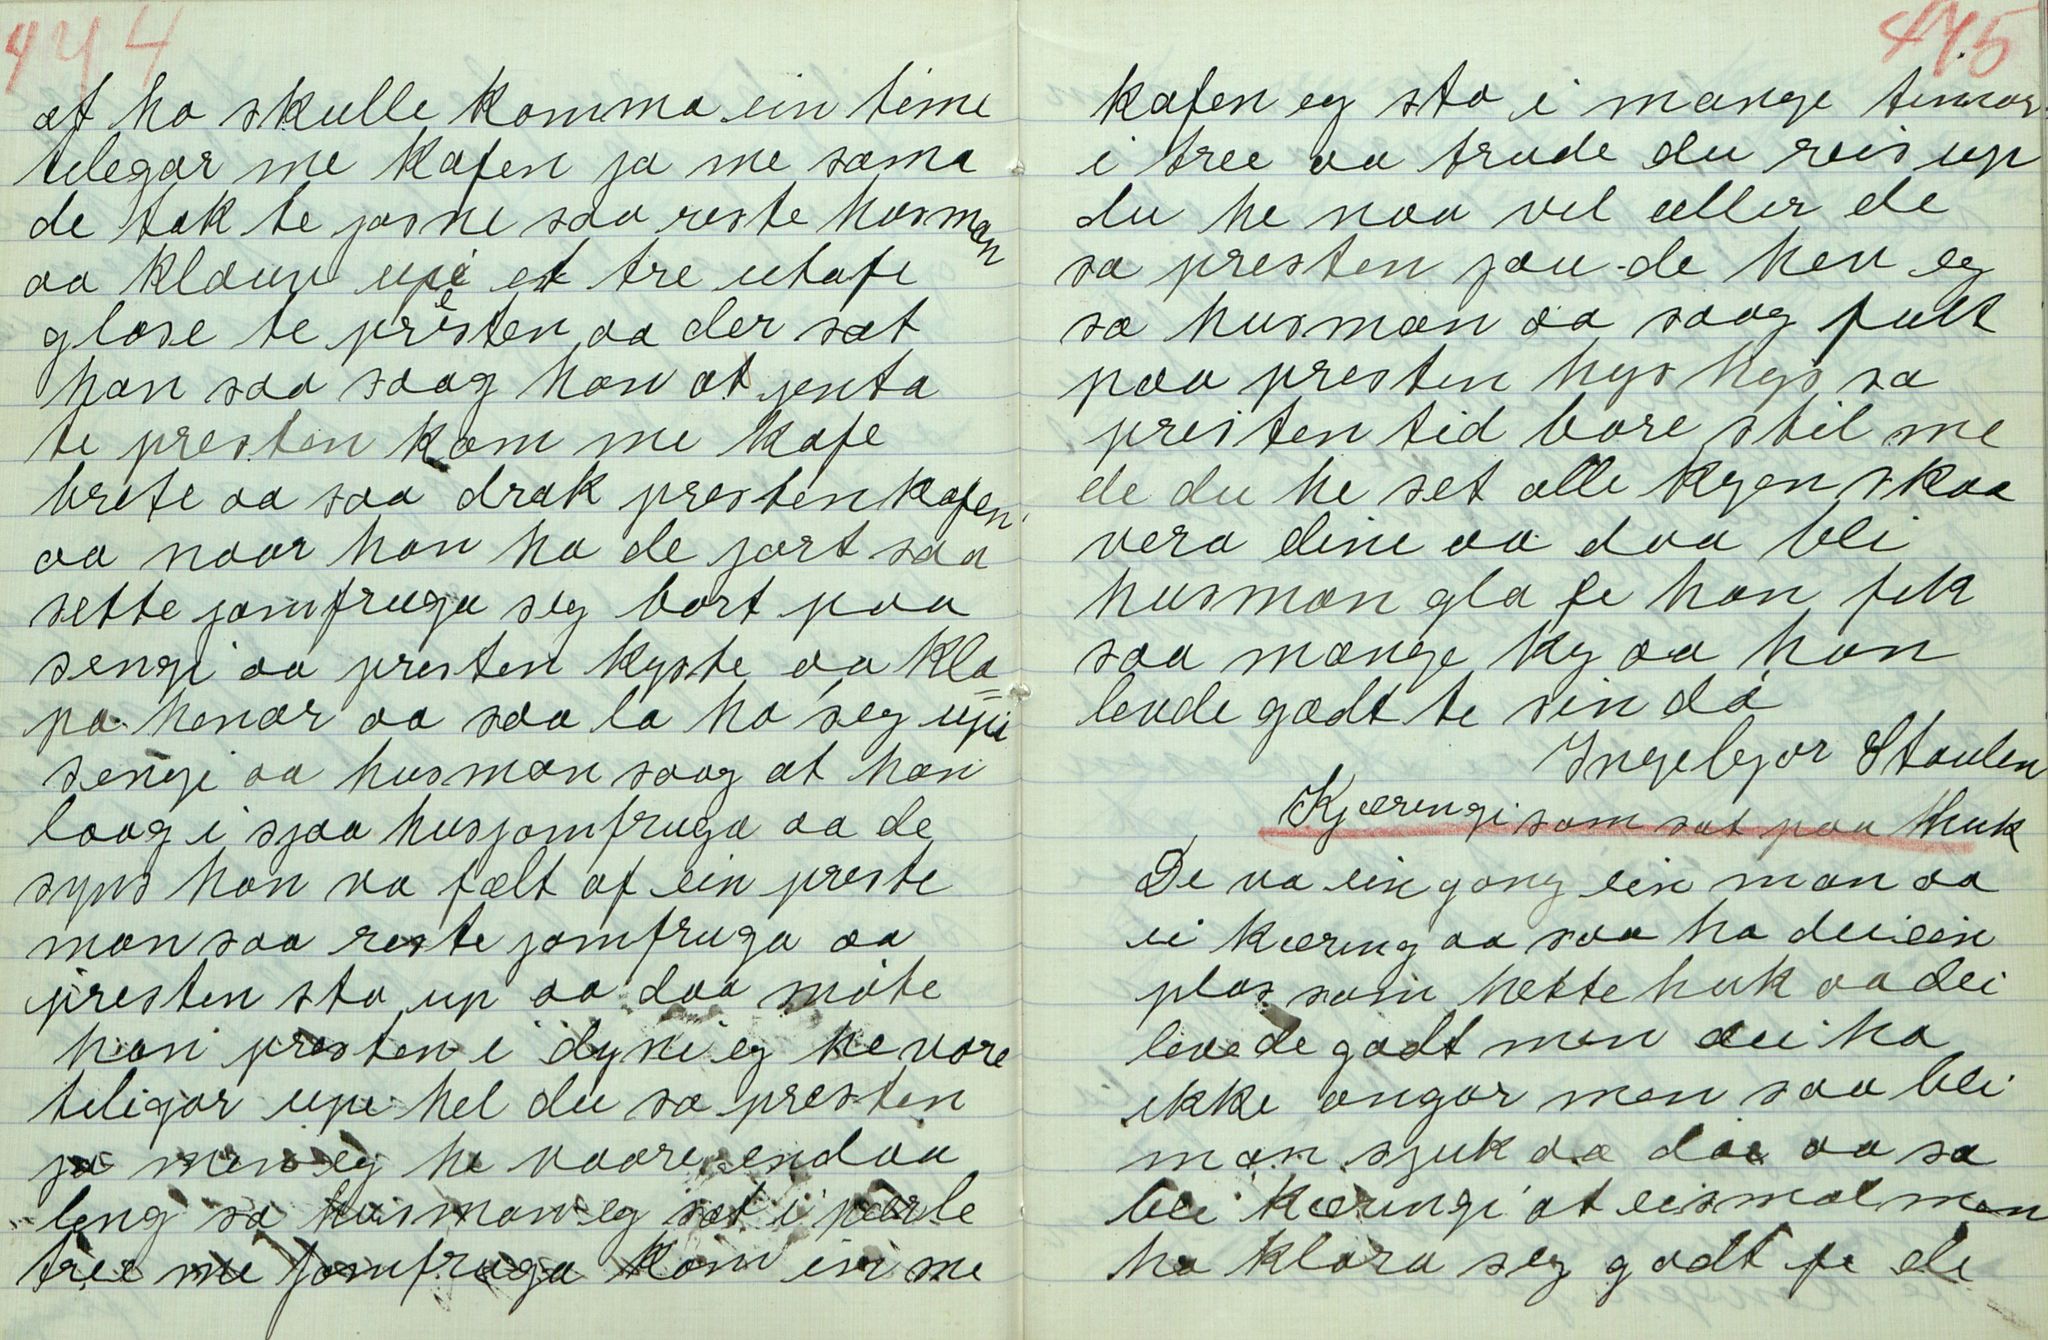 444
at ho skulle komma ein time
tilegar me kafen ja me sama
de tok te josne saa reste husman
aa klauv upi et tre utafe
glase te presten aa der sat
han saa saag han at jenta
te presten kom me kafe
brete aa saa drak presten kafen
aa naar han ha de jort saa
sette jomfruga seg bort paa
sengi aa presten kyste aa kla=
pa henar aa saa la ho seg upi
sengi aa husman saag at han
laag i sjaa husjomfruga aa de
syns han va fælt af ein preste
man saa reste jomfruga aa
presten sto up aa daa møte
han presten i dyni eg he vore
teligar upe hel du sa presten
ja men eg he vaare endaa
leng sa husman eg sat i pærle
tree me jomfruga kom in me
445
kafen eg sto i mange timar
i tree aa trude du reis up
du he naa vel eller de
sa presten jau de hev eg
sa husman aa saag fult
paa presten hys hys sa
presten tid bare stil me
de du he set alle kyen skaa
vera dine aa daa blei
husman gla fe han fek
saa mange ky aa han
levde godt te sin då
Ingebjor Staulen
Kjæringi som sat paa Huk
De va ein gong ein man aa
ei kæring aa saa ha dei ein
plas som hette huk aa dei
levede godt men dei ha
ikke ongar men saa blei
man sjuk aa døe aa sa
blei kæringi at eismal men
ho klara seg godt fe de